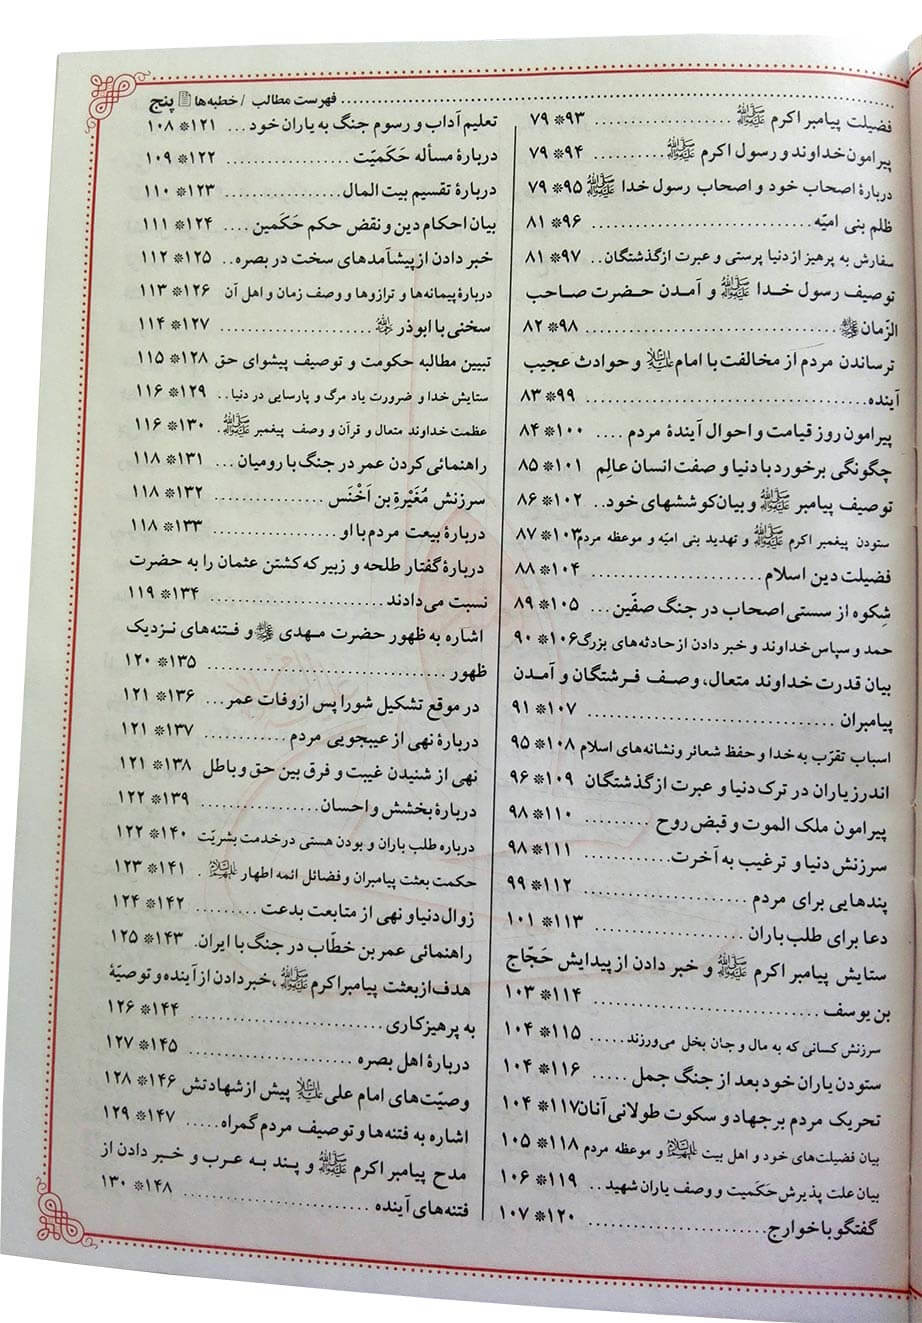 فهرست مطالب / خطبه‌ها پنج
فضیلت پیامبر اکرم ﷺ .................. ۹۳* ۷۹
پیرامون خداوند و رسول اکرم ﷺ.......... ۹۴* ۷۹
دربارهٔ اصحاب خود و اصحاب رسول خدا ﷺ ۹۵* ۷۹
ظلم بنی امیّه .......................... ۹۶* ۸۱
سفارش به پرهیز از دنیا پرستی و عبرت ازگذشتگان.. ۹۷* ۸۱
توصیف رسول خدا ﷺ و آمدن حضرت صاحب
الزّمان .......................... ۹۸* ۸۲
ترساندن مردم از مخالفت با امام و حوادث عجیب
آینده................................ ۹۹* ۸۳
پیرامون روز قیامت و احوال آیندهٔ مردم .... ۱۰۰* ۸۴
چگونگی برخورد با دنیا و صفت انسان عالِم ۱۰۱* ۸۵
توصیف پیامبر ﷺ و بیان کوششهای خود.. ۱۰۲* ۸۶
ستودن پیغمبر اکرم ﷺ و تهدید بنی امیّه و موعظه مردم ۱۰۳* ۸۷
فضیلت دین اسلام ...................... ۱۰۴* ۸۸
شِکوه از سستی اصحاب در جنگ صفّین... ۱۰۵* ۸۹
حمد و سپاس خداوند و خبر دادن از حادثه‌های بزرگ ۱۰۶* ۹۰
بیان قدرت خداوند متعال، وصف فرشتگان و آمدن
پیامبران .............................. ۱۰۷* ۹۱
اسباب تقرّب به خدا و حفظ شعائر ونشانه‌های اسلام ۱۰۸* ۹۵
اندرز یاران در ترک دنیا و عبرت ازگذشتگان ۱۰۹* ۹۶
پیرامون ملک الموت و قبض روح ......... ۱۱۰* ۹۸
سرزنش دنیا و ترغیب به آخرت............ ۱۱۱* ۹۸
پندهایی برای مردم ..................... ۱۱۲* ۹۹
دعا برای طلب باران ................... ۱۱۳* ۱۰۱
ستایش پیامبر اکرم ﷺ و خبر دادن از پیدایش حَجّاج
بن یوسف ............................ ۱۱۴* ۱۰۳
سرزنش کسانی که به مال و جان بخل می‌ورزند..... ۱۱۵* ۱۰۴
ستودن یاران خود بعد از جنگ جمل ..... ۱۱۶* ۱۰۴
تحریک مردم بر جهاد و سکوت طولانی آنان ۱۱۷* ۱۰۴
بیان فضیلت‌های خود و اهل بیت و موعظه مردم ۱۱۸* ۱۰۵
بیان علت پذیرش حَکَمیت و وصف یاران شهید.. ۱۱۹* ۱۰۶
گفتگو با خوارج....................... ۱۲۰* ۱۰۷
تعلیم آداب و رسوم جنگ به یاران خود ... ۱۲۱* ۱۰۸
دربارهٔ مسأله حَکَمیّت .................. ۱۲۲* ۱۰۹
دربارهٔ تقسیم بیت المال ................. ۱۲۳* ۱۱۰
بیان احکام دین و نقض حکم حَکَمین .... ۱۲۴* ۱۱۱
خبر دادن از پیشآمدهای سخت در بصره.. ۱۲۵* ۱۱۲
دربارهٔ پیمانه‌ها و ترازوها و وصف زمان و اهل آن ۱۲۶* ۱۱۳
سخنی با ابوذر ..................... ۱۲۷* ۱۱۴
تبیین مطالبه حکومت و توصیف پیشوای حق ۱۲۸* ۱۱۵
ستایش خدا و ضرورت یاد مرگ و پارسایی در دنیا.. ۱۲۹* ۱۱۶
عظمت خداوند متعال و قرآن و وصف پیغمبر ﷺ. ۱۳۰* ۱۱۶
راهنمائی کردن عمر در جنگ با رومیان ... ۱۳۱* ۱۱۸
سرزنش مُغَیْرةِ بن اَخْنَس ............... ۱۳۲* ۱۱۸
دربارهٔ بیعت مردم با او ................. ۱۳۳* ۱۱۸
دربارهٔ گفتار طلحه و زبیر که کشتن عثمان را به حضرت
نسبت می‌دادند ....................... ۱۳۴* ۱۱۹
اشاره به ظهور حضرت مهدی و فتنه‌های نزدیک
ظهور .............................. ۱۳۵* ۱۲۰
در موقع تشکیل شورا پس از وفات عمر... ۱۳۶* ۱۲۱
دربارهٔ نهی از عیبجویی مردم ............ ۱۳۷* ۱۲۱
نهی از شنیدن غیبت و فرق بین حق و باطل ۱۳۸* ۱۲۱
دربارهٔ بخشش و احسان................ ۱۳۹* ۱۲۲
درباره طلب باران و بودن هستی در خدمت بشریّت ۱۴۰* ۱۲۲
حکمت بعثت پیامبران و فضائل ائمه اطهار . ۱۴۱* ۱۲۳
زوال دنیا و نهی از متابعت بدعت ......... ۱۴۲* ۱۲۴
راهنمائی عمر بن خطّاب در جنگ با ایران. ۱۴۳* ۱۲۵
هدف از بعثت پیامبر اکرم ﷺ، خبر دادن از آینده و توصیهٔ
به پرهیزکاری ........................ ۱۴۴* ۱۲۶
دربارهٔ اهل بصره ..................... ۱۴۵* ۱۲۷
وصیّت‌های امام علی پیش از شهادتش ۱۴۶* ۱۲۸
اشاره به فتنه‌ها و توصیف مردم گمراه..... ۱۴۷* ۱۲۹
مدح پیامبر اکرم ﷺ و پند به عرب و خبر دادن از
فتنه‌های آینده ....................... ۱۴۸* ۱۳۰